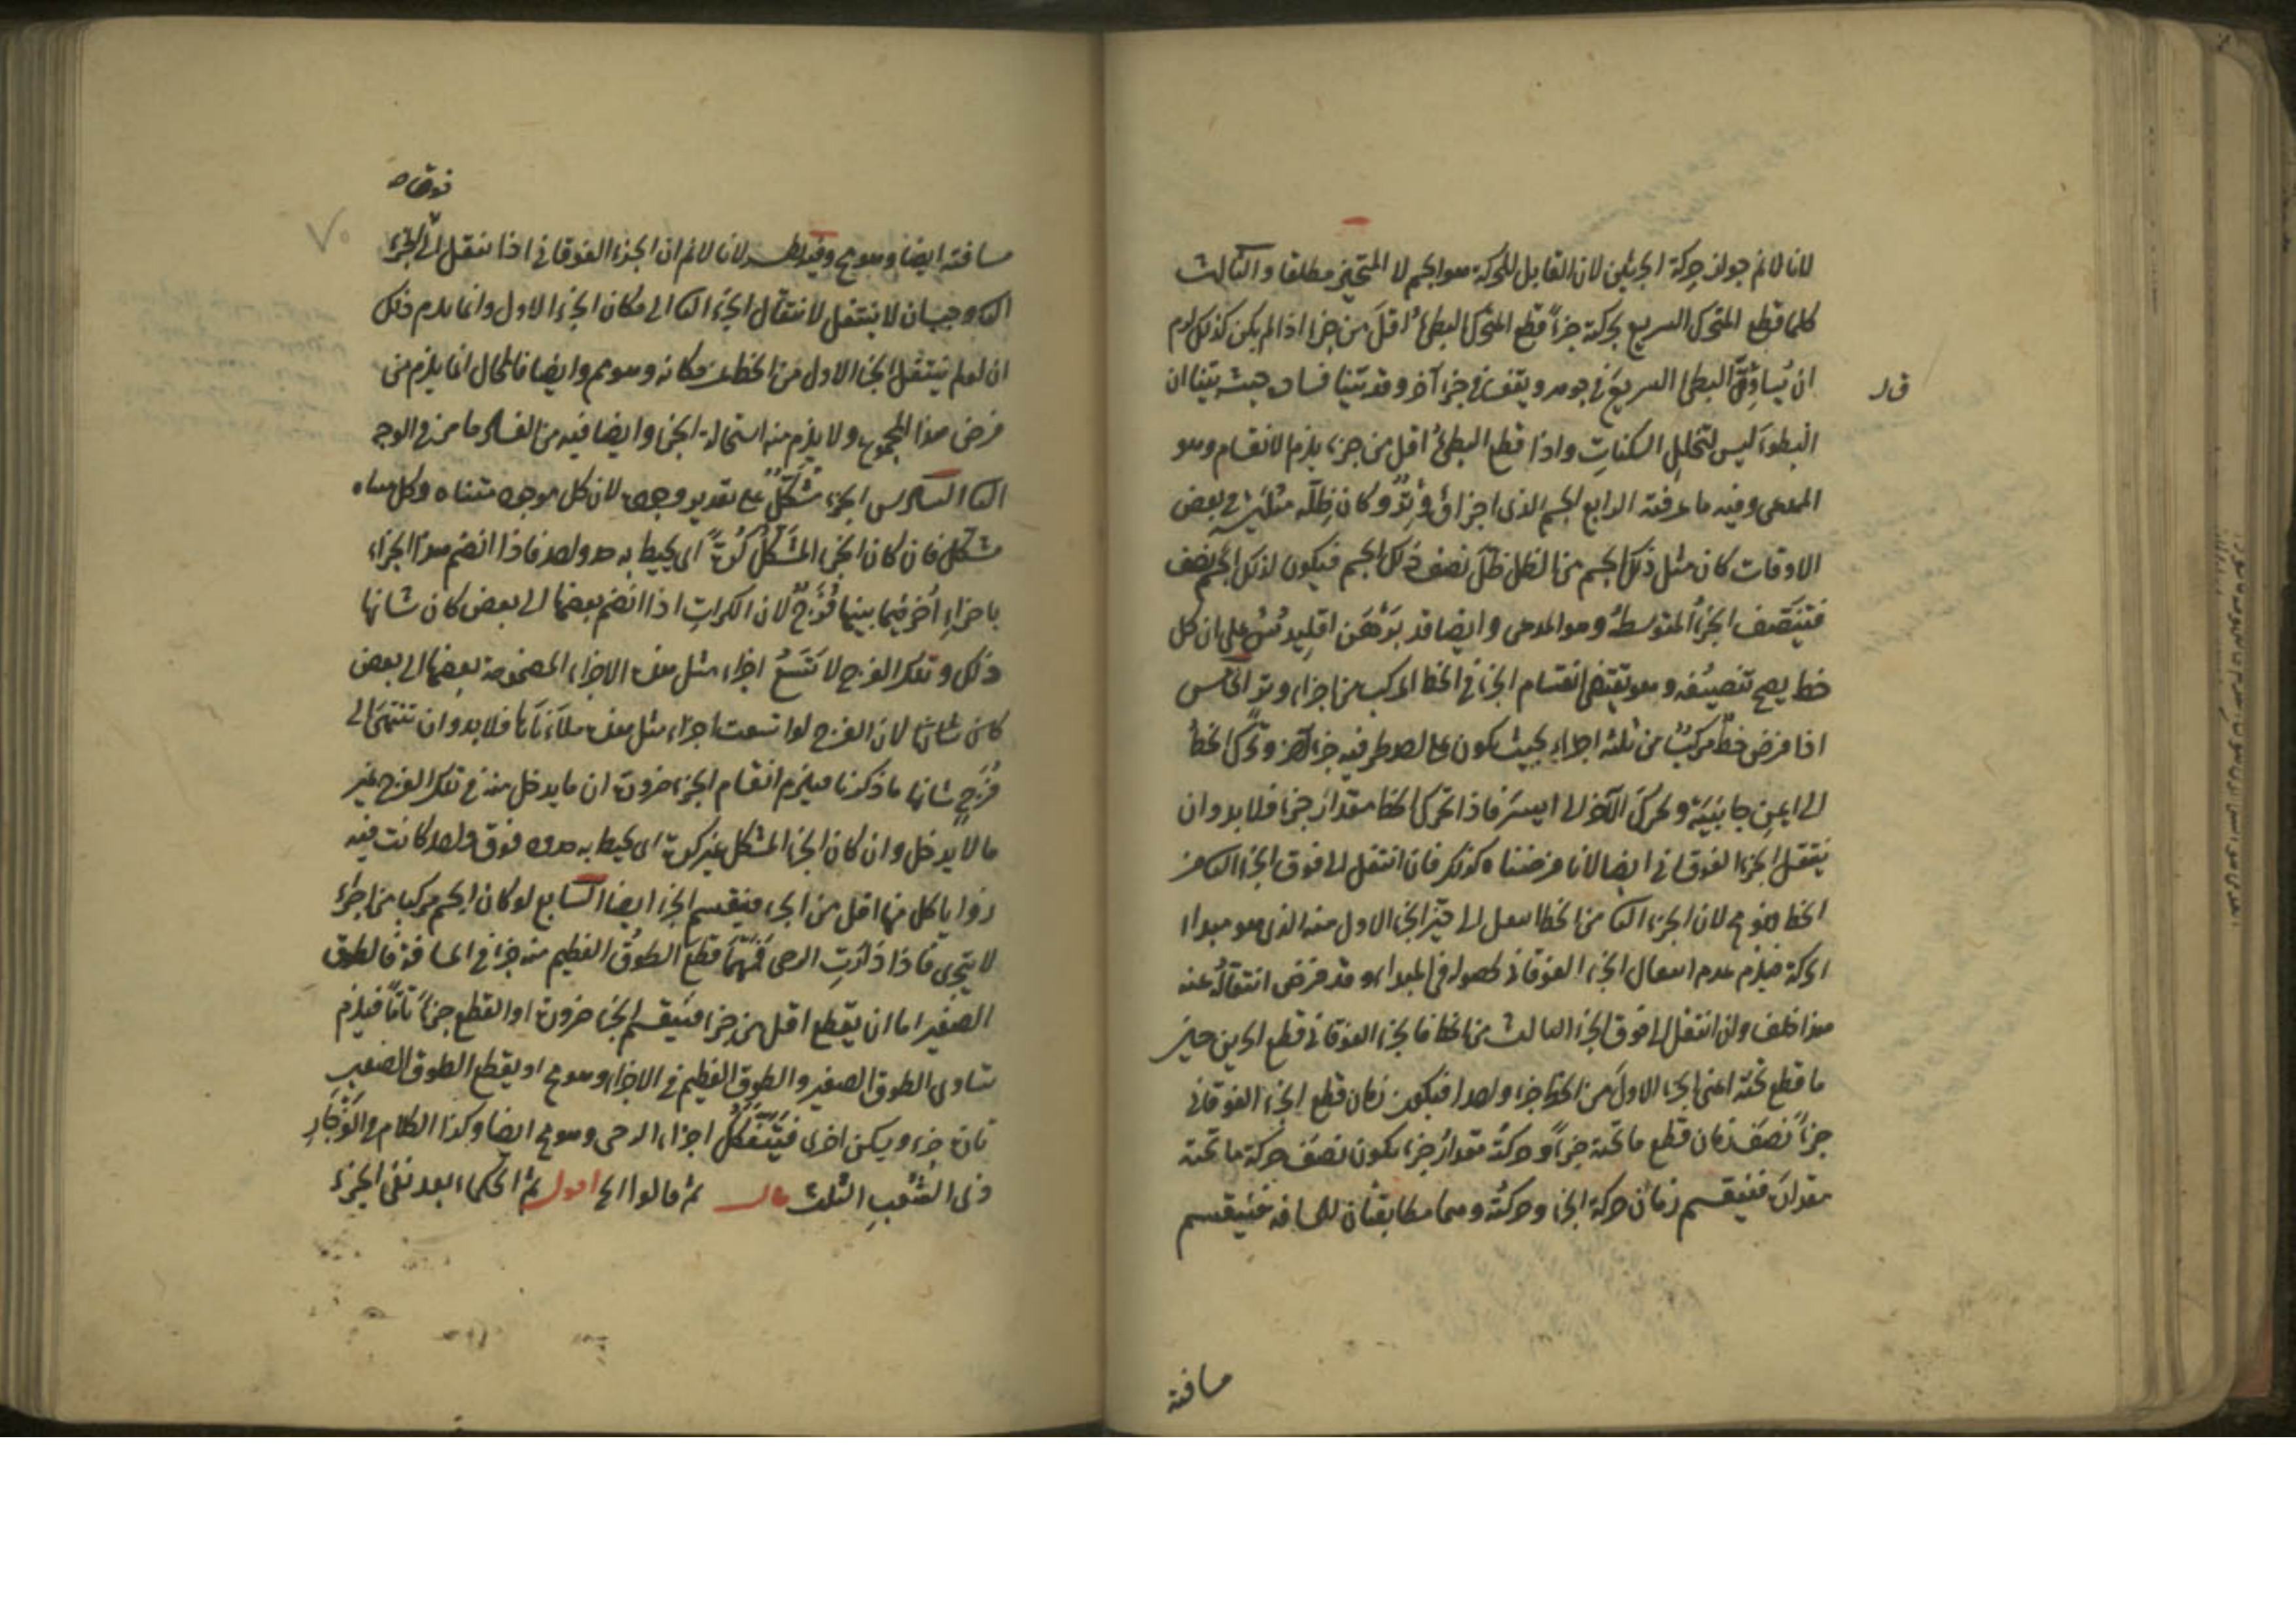 لانا لانم جواز حركة الجزئين لان القابل للحركة هو الجسم لا المتحيز مطلقا والثالث
كلما قطع المتحرك السريع بحركته جزءاً قطع المتحرك البطئ اقل من جزء اذ لو لم يكن كذلك لزم
ان يساوق البطئ السريع في جوهر ويتفق في جزء آخر وقد بينا فساده حيث بينا ان
قال
البطوء ليس لتخلل السكنات واذا قطع البطئ اقل من جزء يلزم الانقسام وهو
المدعى وفيه ما عرفته الرابع الجسم الذى اجزاؤه وتر وكان ظله مثليه في بعض
الاوقات كان مثل ذلك الجسم من الظل ظل نصف ذلك الجسم فيكون لذلك الجسم نصف
فينتصف الجزء المتوسط وهو المدعى وايضا قد برهن اقليدس على ان كل
خط يصح تنصيفه وهو يقتضى انقسام الجزء في الخط المركب من اجزاء وتر الخامس
اذا فرض خط مركب من ثلثة اجزاء بحيث يكون على احد طرفيه جزء آخر وتحرك الخط
الى ايمن جانبيه وتحرك الآخر الى ايسر فاذا تحرك الخط مقدار جزء فلا بد وان
ينتقل الجزء الفوقانى ايضا لانا فرضناه كذلك فان انتقل الى فوق الجزء الثانى من
الخط فهو مح لان الجزء الثانى من الخط انتقل الى حيز الجزء الاول منه الذى هو مبدا
الحركة فيلزم عدم انتقال الجزء الفوقانى لحصوله في المبدا وقد فرض انتقاله عنه
هذا خلف وان انتقل الى فوق الجزء الثالث من الخط فالجزء الفوقانى قطع الحيزين حين
ما قطع تحته اعنى الجزء الاول من الخط جزء واحدا فيكون زمان قطع الجزء الفوقانى
جزءاً نصف زمان قطع ما تحته جزءاً وحركته مقدار جزء يكون نصف حركة ما تحته
مقداره فينقسم زمان حركة الجزء وحركته وهما مطابقتان للمسافة فينقسم
مسافته
فوقاه
مسافته ايضا وهو مح وفيه نظر لانا لانم ان الجزء الفوقانى اذا انتقل الى الجزء
الثانى وجب ان لا ينتقل لانتقال الجزء الثانى الى مكان الجزء الاول وانما يلزم ذلك
ان لو لم ينتقل الجزء الاول من الخط عن مكانه وهو مم وايضا فالمحال انما يلزم من
فرض هذا المجموع ولا يلزم منه استحالة الجزء وايضا فيه من الفساد ما مر في الوجه
الثانى السادس الجزء مشكل على تقدير وجوده لان كل موجود متناه وكل متناه
مشكل فان كان الجزء المشكل كرة اى يحيط به حد واحد فاذا انضم هذا الجزء
باجزاء اخر فيما بينها فرج لان الكرات اذا انضم بعضها الى بعض كان شانها
ذلك وتلك الفرج لا تتسع اجزاء مثل هذه الاجزاء المضمومة بعضها الى بعض
كان شانها لان الفرج لو اتسعت اجزاء مثل هذه ملأناها فلا بد وان تنتهى الى
فرج شانها ما ذكرنا فيلزم انقسام الجزء ضرورة ان ما يدخل منه في تلك الفرج غير
ما لا يدخل وان كان الجزء المشكل غير كرة اى يحيط به حدود فوق واحد كانت فيه
زوايا كل منها اقل من الجزء فينقسم الجزء ايضا السابع لو كان الجسم مركبا من اجزاء
لا يتجزى فاذا ادارت الرحى فمهما قطع الطوق العظيم منه جزءا في المسافة فالطوق
الصغير اما ان يقطع اقل من جزء فينقسم الجزء ضرورة او القطع جزءاً تاماً فيلزم
تساوى الطوق الصغير والطوق العظيم في الاجزاء وهو مح او يقطع الطوق الصغير
تارة جزء ويسكن اخرى فيتفكك اجزاء الرحى وهو مح ايضا وكذا الكلام في الفرجار
ذى الشعب الثلث قال ثم قالوا الخ اقول ثم الحكماء بعد نفى الجزء